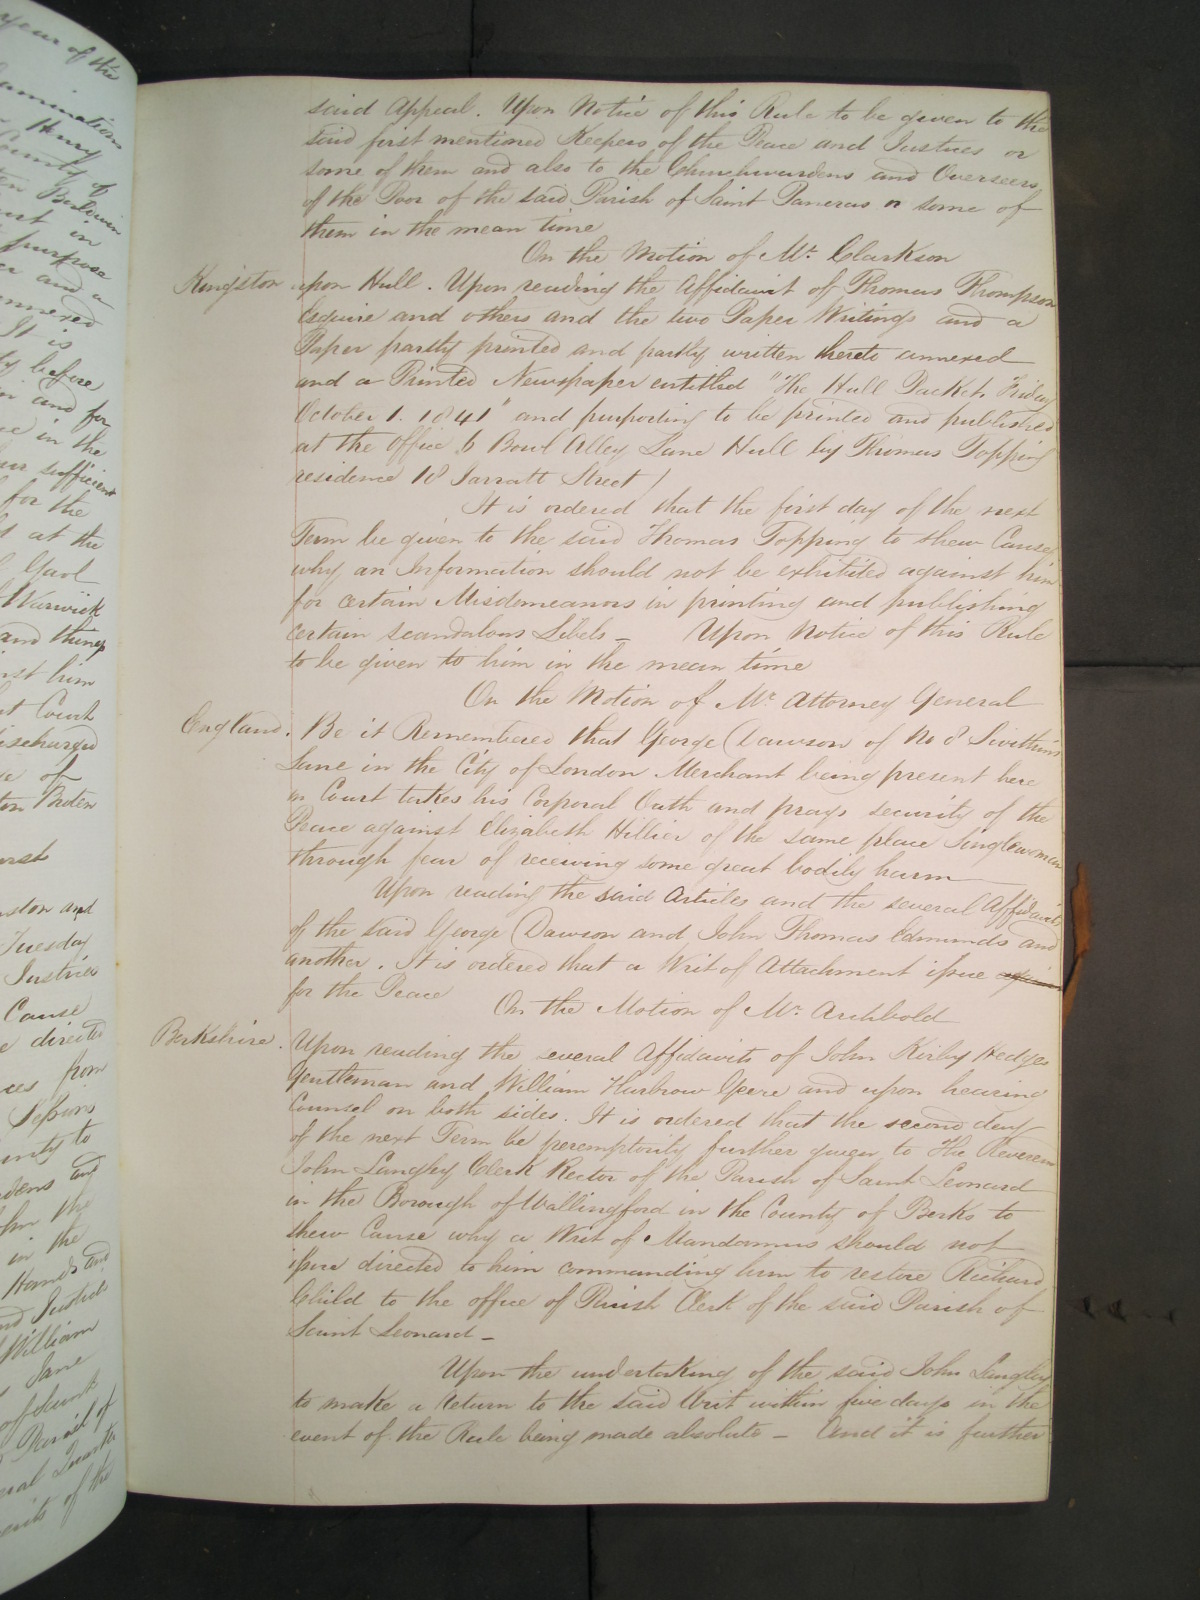 said Appeal. Upon Notice of this Rule to be given to the
said first mentioned Keepers of the Peace and Justices or
some of them and also to the Churchwardens and Overseers
of the Poor of the said Parish of Saint Pancras or some of
them in the mean time
On the Motion of Mr. Clarkson
Kingston upon Hull. Upon reading the Affidavit of Thomas Thompson
Esquire and others and the two Paper Writings and a
Paper partly printed and partly written thereto annexed
and a Printed Newspaper entitled "The Hull Packet, Friday
October 1. 1841" and purporting to be printed and published
at the Office 6 Bowl Alley Lane Hull by Thomas Topping
residence 18 Jarratt Street /
It is ordered that the first day of the next
Term be given to the said Thomas Topping to shew Cause
why an Information should not be exhibited against him
for certain Misdemeanors in printing and publishing
certain scandalous Libels - Upon Notice of this Rule
to be given to him in the mean time
On the Motion of Mr. Attorney General
England. Be it Remembered that George Dawson of No 8 Swithins
Lane in the City of London Merchant being present here
in Court takes his Corporal Oath and prays security of the
Peace against Elizabeth Hillier of the same place Singlewoman
through fear of receiving some great bodily harm
Upon reading the said Articles and the several Affidavits
of the said George Dawson and John Thomas Edmunds and
another. It is ordered that a Writ of Attachment issue
for the Peace
On the Motion of Mr. Archbold
Berkshire. Upon reading the several Affidavits of John Kirby Hedges
Gentleman and William Harbrow and upon hearing
Counsel on both sides. It is ordered that the second day
of the next Term be peremptorily further given to The Reverend
John Langley Clerk Rector of the Parish of Saint Leonard
in the Borough of Wallingford in the County of Berks to
shew Cause why a Writ of Mandamus should not
issue directed to him commanding him to restore Richard
Child to the office of Parish Clerk of the said Parish of
Saint Leonard -
Upon the undertaking of the said John Langley
to make a return to the said Writ within five days in the
event of the Rule being made absolute - And it is further